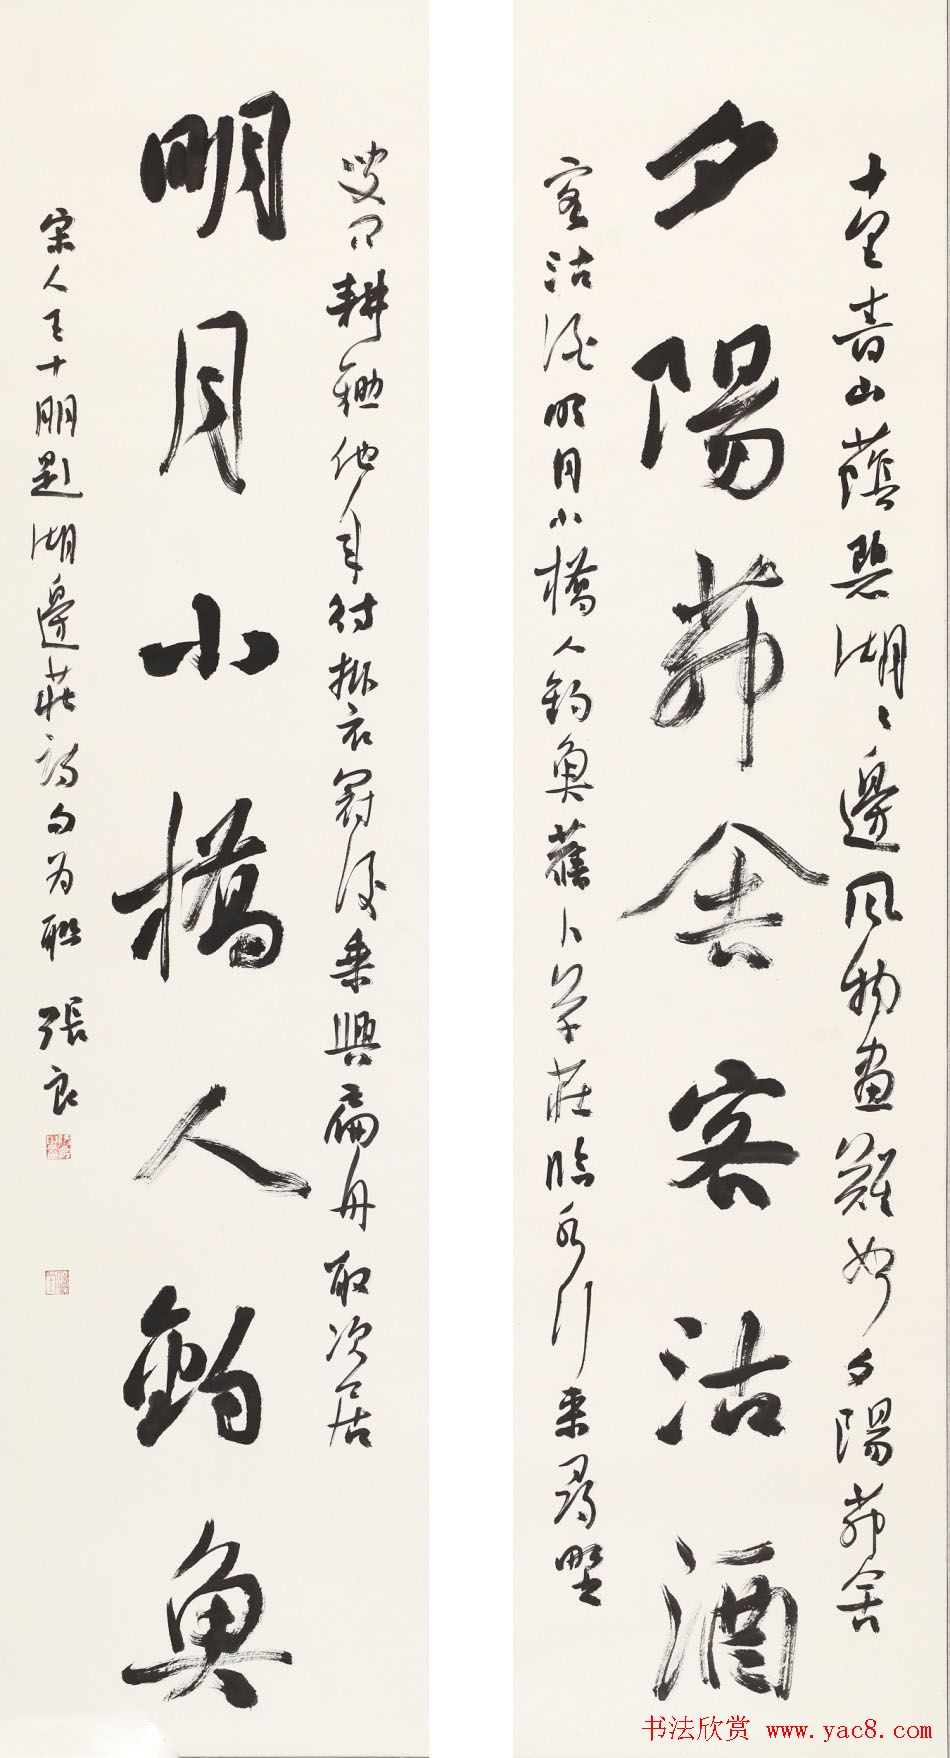 十里青山蔭碧湖〻邊風物畫難如夕陽茆舍
夕陽茆舍客沽酒
客沽酒明月小橋人釣魚舊卜草莊臨水竹来尋野
叟問耕鋤他年待掛衣冠後乘興扁舟取次居
明月小橋人釣魚
宋人王十朋題湖邊莊詩句為聯 張良
书法欣赏 www.yac8.com